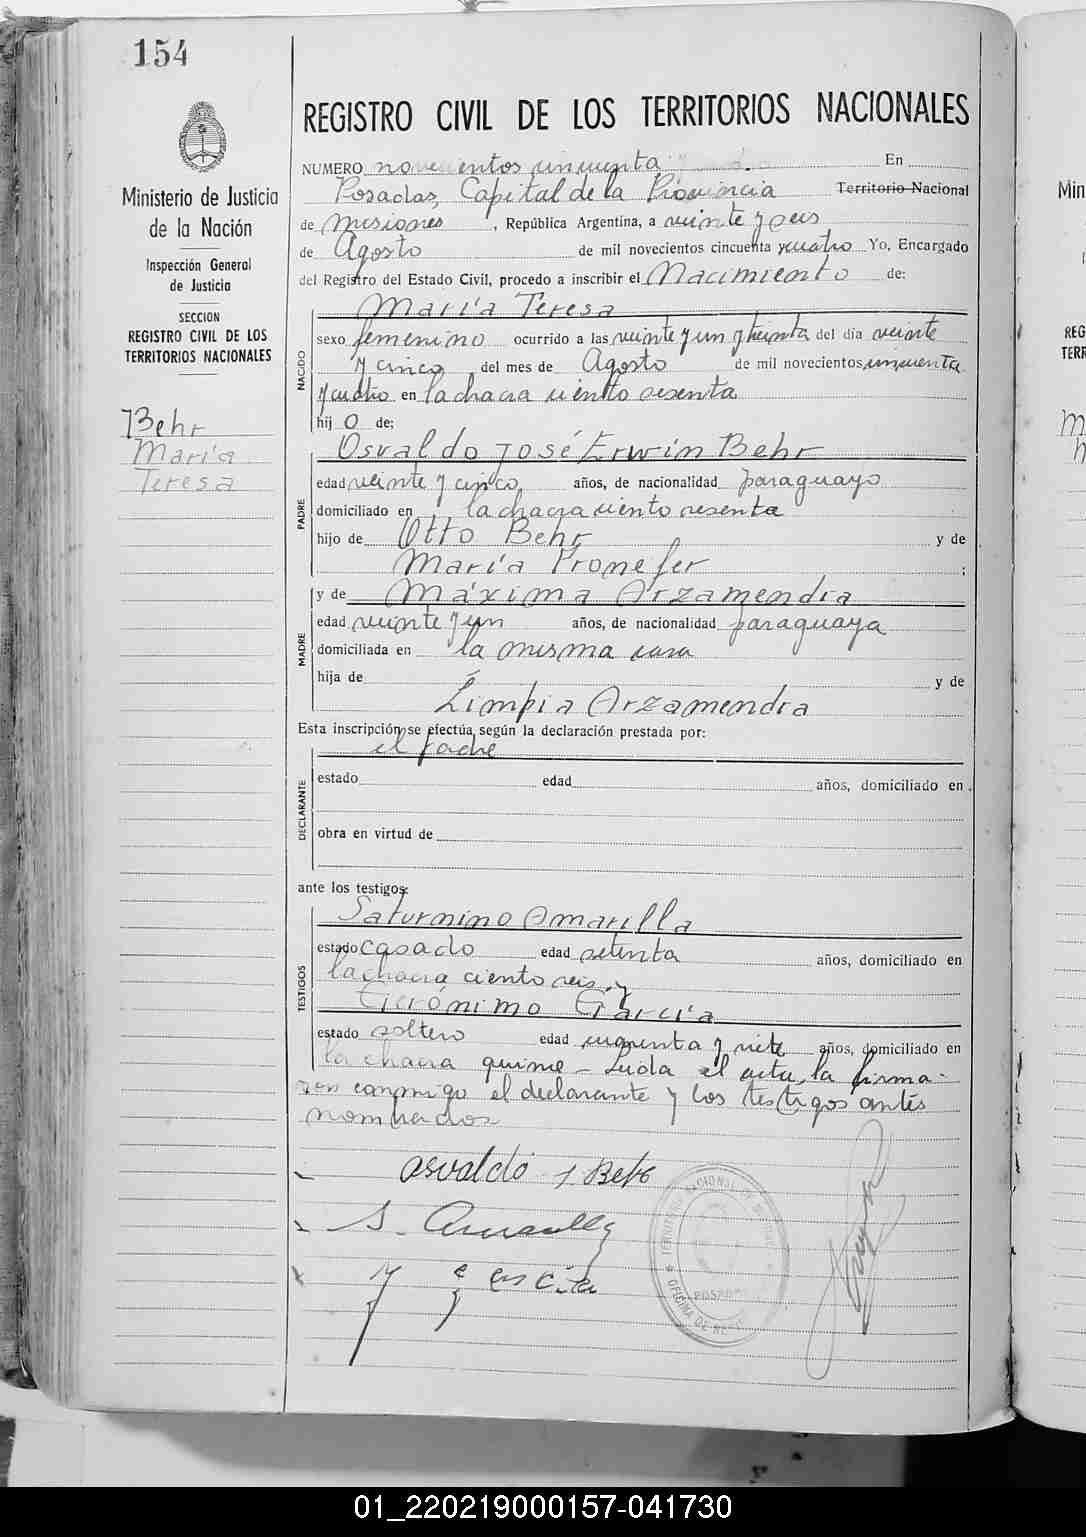 154
Ministerio de Justicia
de la Nación
Inspección General
de Justicia
SECCION
REGISTRO CIVIL DE LOS
TERRITORIOS NACIONALES
Behr
María
Teresa
REGISTRO CIVIL DE LOS TERRITORIOS NACIONALES
NUMERO novecientos cincuenta En
Posadas, Capital de la Provincia Territorio Nacional
de Misiones, República Argentina, a veinte y seis
de Agosto de mil novecientos cincuenta y cuatro Yo, Encargado
del Registro del Estado Civil, procedo a inscribir el Nacimiento de:
NACIDO
María Teresa
sexo femenino ocurrido a las veinte y un y treinta del día veinte
y cinco del mes de Agosto de mil novecientos cincuenta
y cuatro en la chacra ciento sesenta
hij o de;
PADRE
Osvaldo José Erwin Behr
edad veinte y cinco años, de nacionalidad paraguayo
domiciliado en la chacra ciento sesenta
hijo de Otto Behr y de
María Pronefer ;
MADRE
y de Máxima Arzamendia
edad veinte y un años, de nacionalidad paraguaya
domiciliada en la misma casa
hija de y de
Limpia Arzamendia
Esta inscripción se efectúa según la declaración prestada por:
DECLARANTE
el padre
estado edad años, domiciliado en
obra en virtud de
ante los testigos:
TESTIGOS
Saturnino Amarilla
estado casado edad setenta años, domiciliado en
la chacra ciento seis, y
Gerónimo García
estado soltero edad cincuenta y siete años, domiciliado en
la chacra quince - Leída el acta, la firma-
ron conmigo el declarante y los testigos antes
nombrados
Osvaldo J Behr
S. Amarilla
OFICINA DE
POSADAS
Min
REG
TERR
01_220219000157-041730